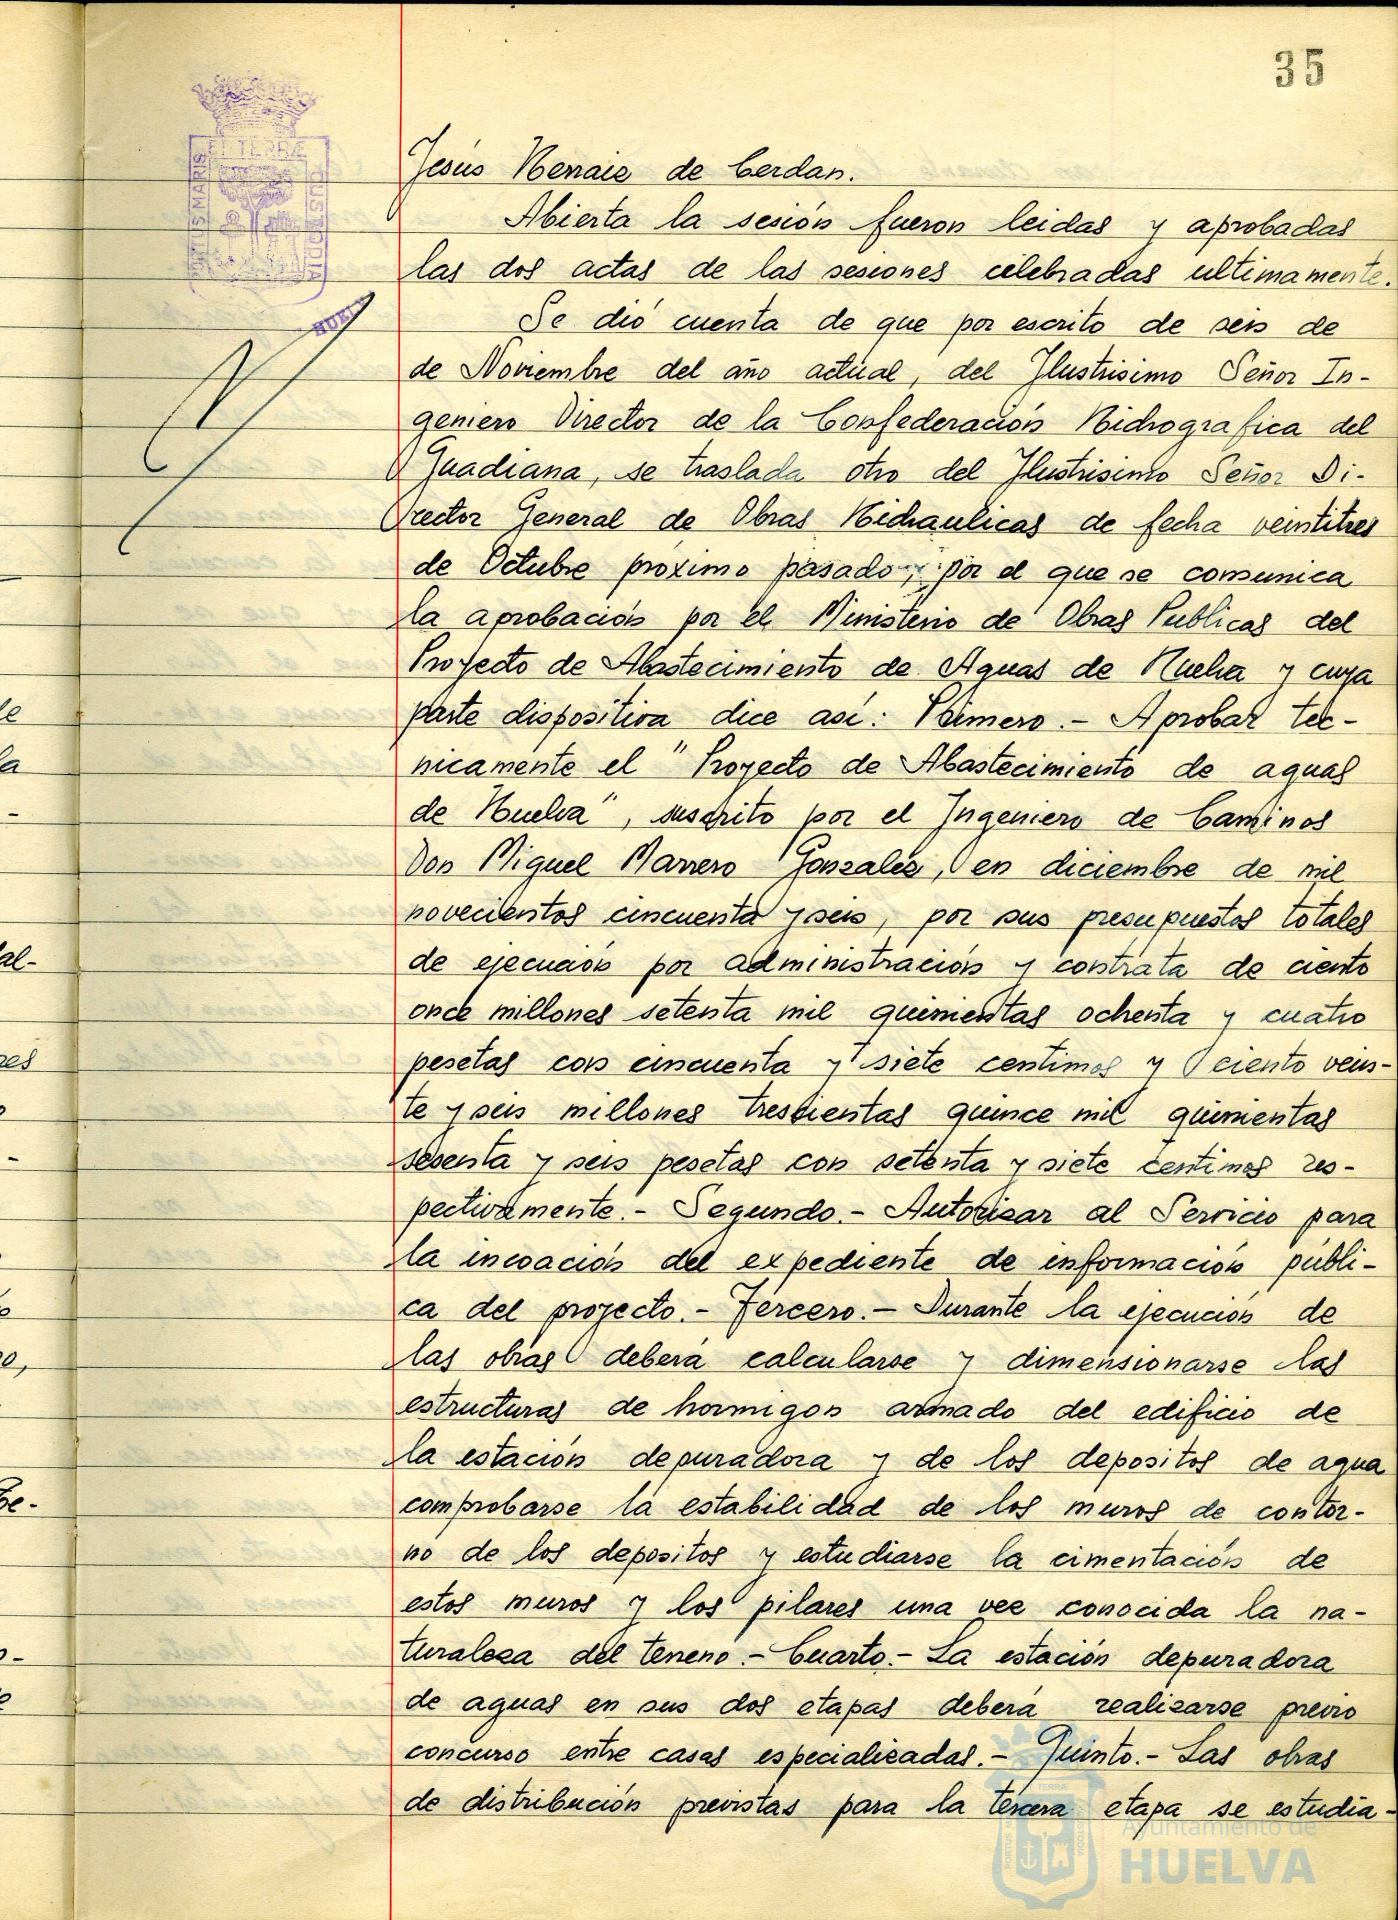 35
ET TERRÆ
PORTUS MARIS
CUSTODIA
HUELV
Jesús Herraiz de Cerdan.
Abierta la sesión fueron leidas y aprobadas
las dos actas de las sesiones celebradas ultimamente.
Se dió cuenta de que por escrito de seis de
de Noviembre del año actual, del Ilustrisimo Señor In-
geniero Director de la Confederación Hidrografica del
Guadiana, se traslada otro del Ilustrisimo Señor Di-
rector General de Obras Hidraulicas de fecha veintitres
de Octubre próximo pasado, por el que se comunica
la aprobación por el Ministerio de Obras Publicas del
Proyecto de Abastecimiento de Aguas de Huelva y cuya
parte dispositiva dice así: Primero.- Aprobar tec-
nicamente el "Proyecto de Abastecimiento de aguas
de Huelva", suscrito por el Ingeniero de Caminos
Don Miguel Marrero Gonzalez, en diciembre de mil
novecientos cincuenta y seis, por sus presupuestos totales
de ejecución por administración y contrata de ciento
once millones setenta mil quinientas ochenta y cuatro
pesetas con cincuenta y siete centimos y ciento vein-
te y seis millones trescientas quince mil quinientas
sesenta y seis pesetas con setenta y siete centimos res-
pectivamente.- Segundo.- Autorizar al Servicio para
la incoación del expediente de información públi-
ca del proyecto.- Tercero.- Durante la ejecución de
las obras deberá calcularse y dimensionarse las
estructuras de hormigon armado del edificio de
la estación depuradora y de los depositos de agua
comprobarse la estabilidad de los muros de contor-
no de los depositos y estudiarse la cimentación de
estos muros y los pilares una vez conocida la na-
turaleza del terreno.- Cuarto.- La estación depuradora
de aguas en sus dos etapas deberá realizarse previo
concurso entre casas especializadas.- Quinto.- Las obras
de distribución previstas para la tercera etapa se estudia-
Ayuntamiento de
HUELVA